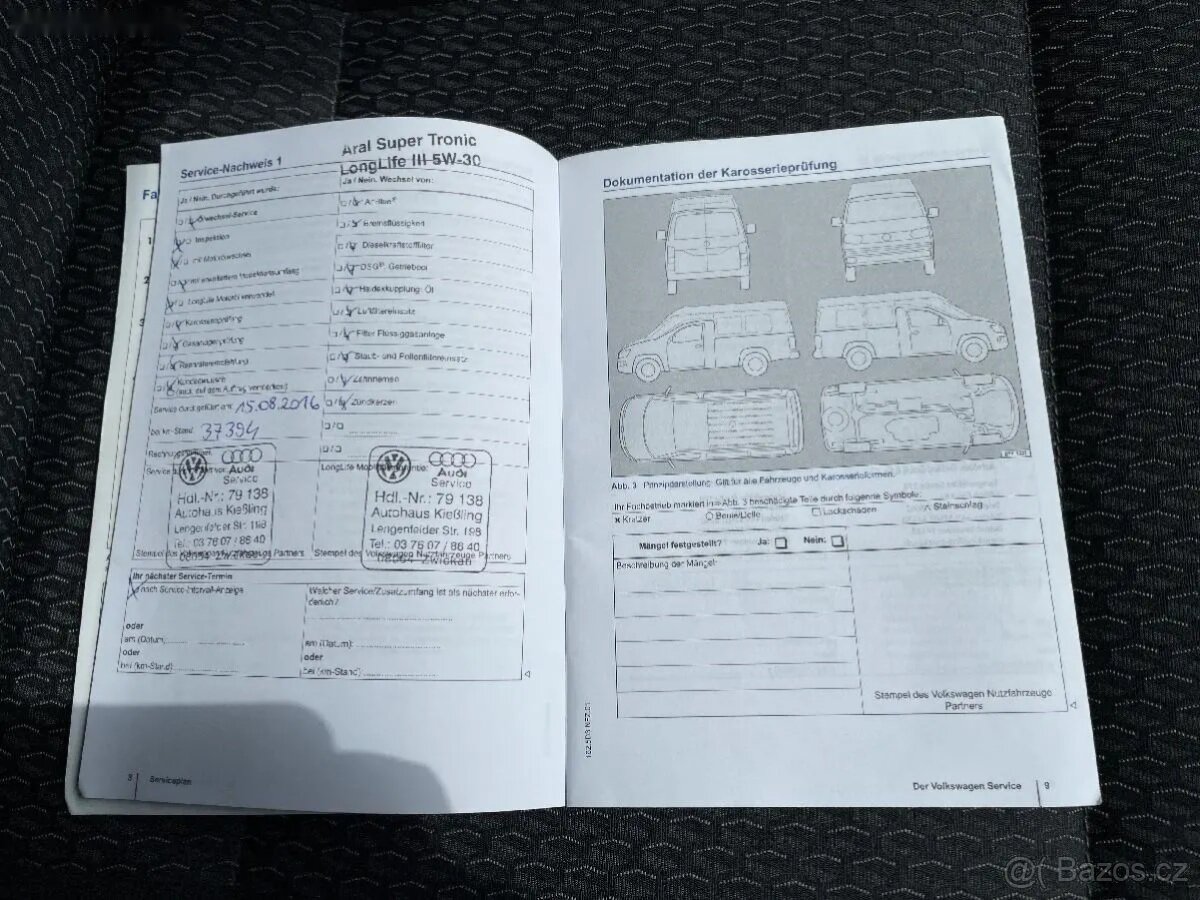 Fa
1
2
3
Service-Nachweis 1
Aral Super Tronic
LongLife III 5W-30
Ja / Nein. Durchgeführt wurde:
Ölwechsel-Service
Inspektion
mit Motorölwechsel
LongLife Motoröl verwendet
Karosserieprüfung
Gasanlagenprüfung
Service durchgeführt am: 15.08.2016
bei km-Stand: 37394
Ja / Nein. Wechsel von:
AdBlue®
Bremsflüssigkeit
Dieselkraftstofffilter
DSG®: Getriebeöl
Haldexkupplung: Öl
Luftfiltereinsatz
Filter Flüssiggasanlage
Staub- und Pollenfiltereinsatz
Zahnriemen
Zündkerzen
Audi
Service
Hdl.-Nr.: 79 138
Autohaus Kießling
Lengenfelder Str. 198
Tel.: 03 76 07 / 86 40
08064 Zwickau
Audi
Service
Hdl.-Nr.: 79 138
Autohaus Kießling
Lengenfelder Str. 198
Tel.: 03 76 07 / 86 40
08064 Zwickau
Stempel des Volkswagen Nutzfahrzeuge Partners
Ihr nächster Service-Termin
nach Service-Intervall-Anzeige
oder
am (Datum)
oder
bei (km-Stand)
Welcher Service/Zusatzumfang ist als nächster erfor-
derlich?
am (Datum):
oder
bei (km-Stand)
8 Serviceplan
Dokumentation der Karosserieprüfung
Abb. 3 Prinzipdarstellung: Gilt für alle Fahrzeuge und Karosserieformen.
Ihr Fachbetrieb markiert in Abb. 3 beschädigte Teile durch folgende Symbole:
x Kratzer
○ Beule/Delle
□ Lackschäden
∧ Steinschlag
Mängel festgestellt? Ja: Nein:
Beschreibung der Mängel:
Stempel des Volkswagen Nutzfahrzeuge
Partners
Der Volkswagen Service 9
@( Bazos.cz